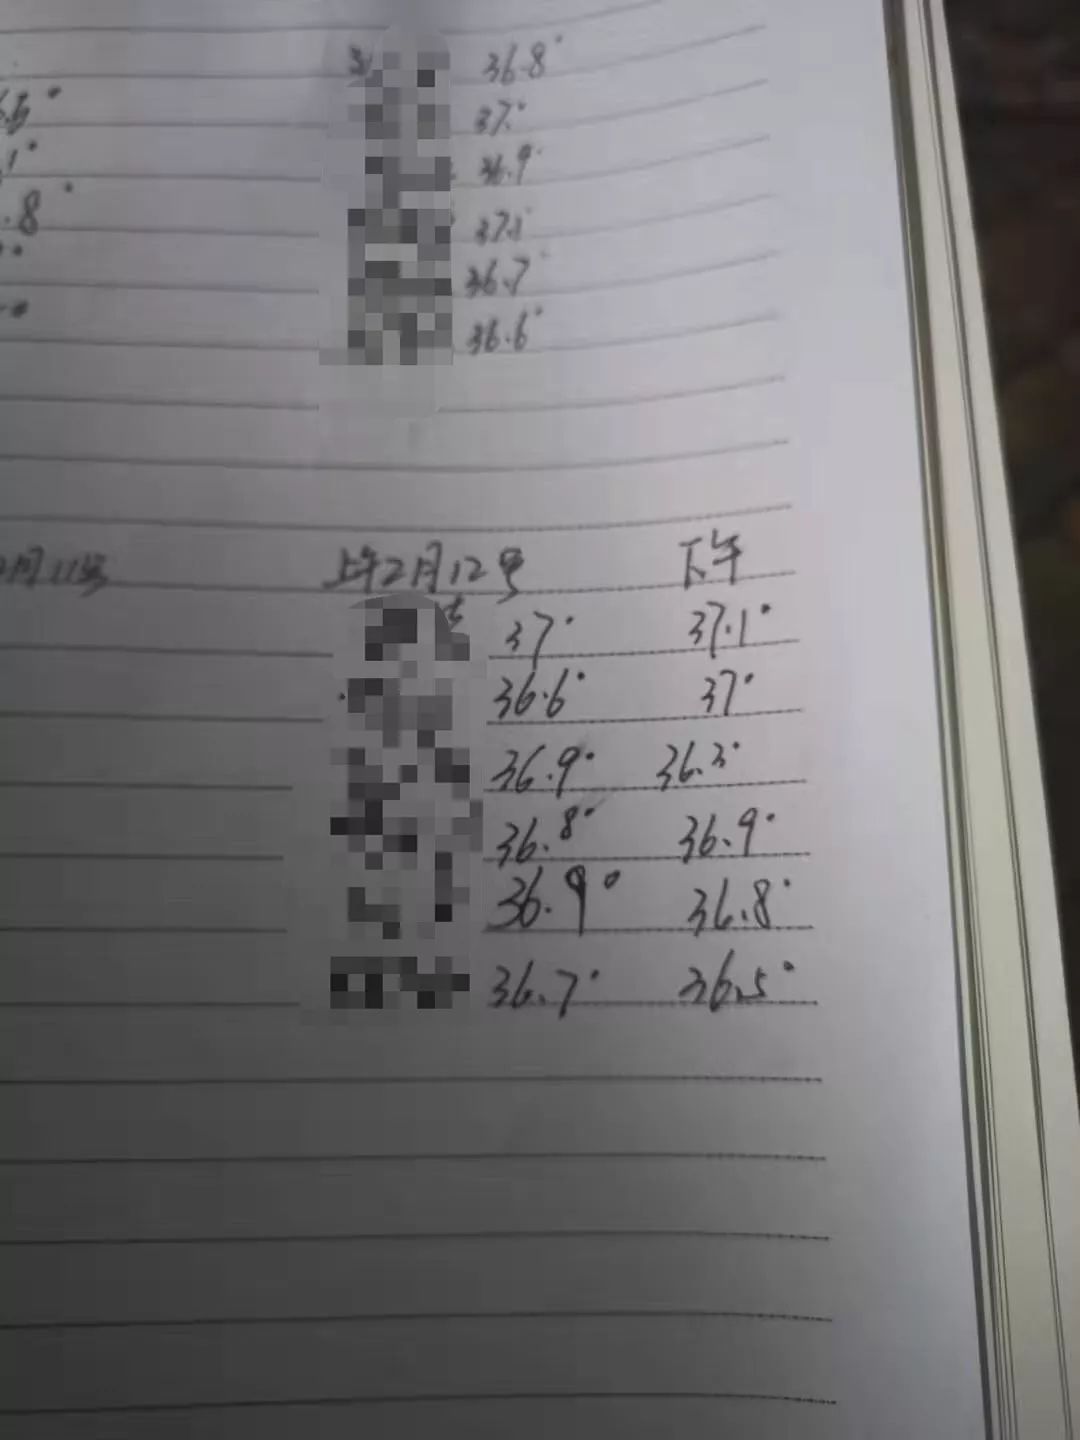 36.8°
37.°
.1° 36.9°
.8° 37.1°
36.7°
36.6°
2月11号 上午2月12号 下午
37° 37.1°
36.6° 37°
36.9° 36.3°
36.8° 36.9°
36.9° 36.8°
36.7° 36.5°